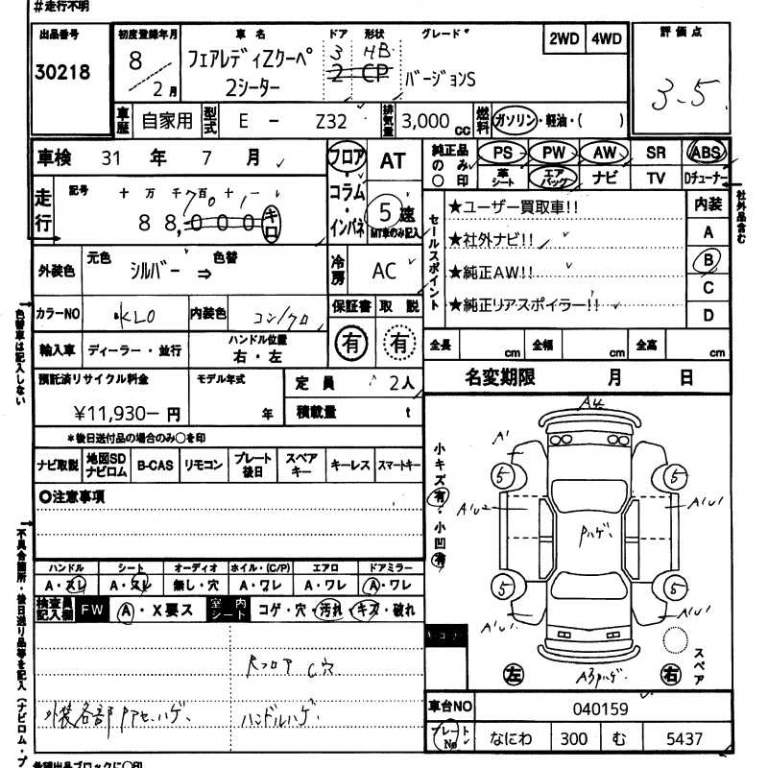 #走行不明
出品番号 初度登録年月 車名 ドア 形状 グレード 2WD 4WD 評価点
30218 8 / 2月 フェアレディZクーペ 2シーター 3 HB 2 CP バージョンS 3.5
車歴 自家用 型式 E - Z32 排気量 3,000 cc 燃料 ガソリン・軽油・( )
車検 31 年 7 月 フロア・コラム・インパネ AT 純正品のみ○印 PS PW AW SR ABS
革シート エアバッグ ナビ TV Dチューナー
社外品含む
走行 記号 十 万 千 百 十 一
88,000 キロ 5 速 MT車のみ記入
セールスポイント ★ユーザー買取車!! 内装
★社外ナビ!! A
★純正AW!! B
★純正リアスポイラー!! C
D
外装色 元色 シルバー ⇒ 色替 冷房 AC
色替車は記入しない
カラーNO KL0 内装色 コン/クロ 保証書 取説
有 有
輸入車 ディーラー・並行 ハンドル位置 右・左
全長 cm 全幅 cm 全高 cm
預託済リサイクル料金 モデル年式 定員 2人 名変期限 月 日
¥11,930− 円 年 積載量 t
*後日送付品の場合のみ○を印
ナビ取説 地図SD ナビロム B-CAS リモコン プレート後日 スペアキー キーレス スマートキー
○注意事項
小キズ 有・小凹 有
A4
A' 5 5
A'U2 Pハゲ A'U1
5 5
A'U1 A'U1
左 A3 Pハゲ 右 スペア
不具合箇所・後日送り品等を記入(ナビロム・プ
ハンドル シート オーディオ ホイル・(C/P) エアロ ドアミラー
A・スレ A・スレ 無し・穴 A・ワレ A・ワレ A・ワレ
検査員記入欄 FW A・X要ス 室内シート コゲ・穴・汚れ・キズ・破れ
Rフロア C穴
外装各部Pアセ、ハゲ、 ハンドルハゲ
車台NO 040159
プレートNo なにわ 300 む 5437